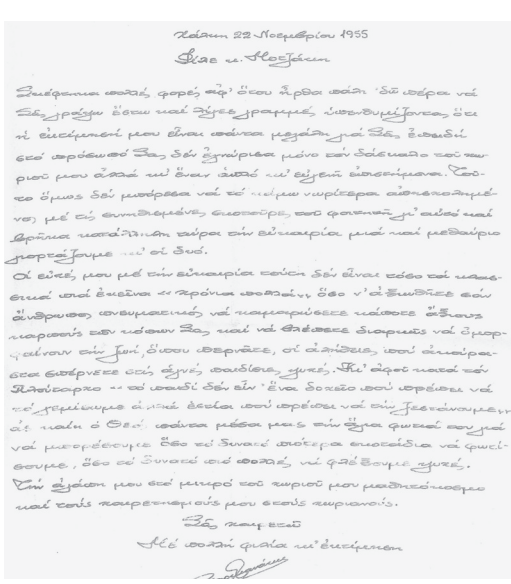 Χάλκη 22 Νοεμβρίου 1955
Φίλε κ. Μοτζάκη
Σκέφτηκα πολλές φορές ἀφ' ὅτου ἦρθα πάλι 'δῶ πέρα νά
Σᾶς γράψω ἔστω καί λίγες γραμμές ὑπενθυμίζοντας ὅτι
ἡ ἐκτίμησή μου εἶναι πάντα μεγάλη γιά Σᾶς, ἐπειδή
στό πρόσωπό Σας δέν ἐγνώρισα μόνο τόν δάσκαλο τοῦ χω-
ριοῦ μου ἀλλά κι' ἕναν ἁπλό κι' εὐγενῆ ἐπιστήμονα. Τοῦ-
το ὅμως δέν μπόρεσα νά τό κάμω νωρίτερα ἀπησχολημέ-
νος μέ τίς συνηθισμένες σκοτοῦρες τοῦ φοιτητῆ γι' αὐτό καί
βρῆκα κατάλληλη τώρα τήν εὐκαιρία μιά καί μεθαύριο
γιορτάζουμε κι' οἱ δυό.
Οἱ εὐχές μου μέ τήν εὐκαιρία τούτη δέν εἶναι τόσο τά κλασ-
σικά πιά ἐκεῖνα «χρόνια πολλά», ὅσο ν' ἀξιωθῆτε σάν
ἄνθρωπος πνευματικός νά καμαρώσετε κάποτε ἄξιους
καρπούς τῶν κόπων Σας καί νά βλέπετε διαρκῶς νά ὀμορ-
φαίνουν τήν ζωή, ὅπου περνᾶτε, οἱ ἀλήθειες πού ἀκούρα-
στα σπέρνετε στίς ἁγνές παιδικές ψυχές. Κι' ἀφοῦ κατά τόν
Πλούταρχο «τό παιδί δέν εἶν' ἕνα δοχεῖο πού πρέπει νά
τό γεμίσουμε ἀλλά ἑστία πού πρέπει νά τήν ζεστάνουμε»,
ἄς καίη ὁ Θεός πάντα μέσα μας τήν ἅγια φωτιά του γιά
νά μπορέσουμε ὅσο τό δυνατό πιότερα σκοτάδια νά φωτί-
σουμε, ὅσο τό δυνατό πιό πολλές νά φλέξουμε ψυχές.
Τήν ἀγάπη μου στό μικρό τοῦ χωριοῦ μου μαθητόκοσμο
καί τούς χαιρετισμούς μου στούς χωριανούς.
Σᾶς χαιρετῶ
Μέ πολλή φιλία κι' ἐκτίμηση